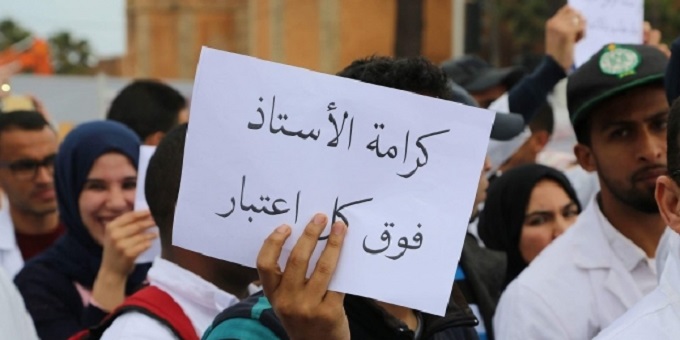 كرامة الأستاذ
فوق كل اعتبار